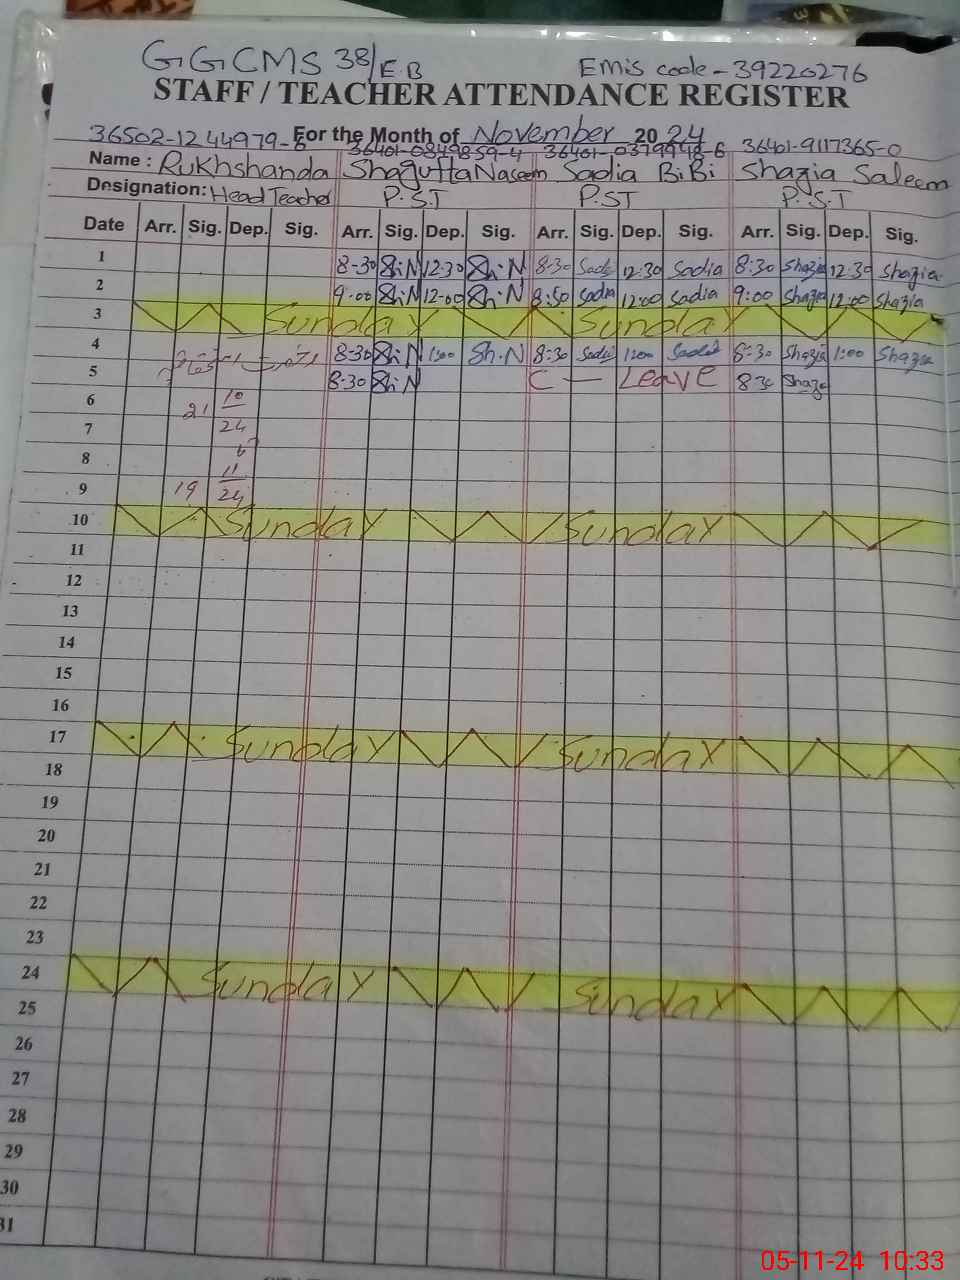 GGCMS 38/E.B Emis code - 39220276
STAFF / TEACHER ATTENDANCE REGISTER
36502-1244979-6 For the Month of November 2024
36401-0849859-4 36401-0379948-6 36401-9117365-0
Name : Rukhshanda Shagufta Naseem Sadia BiBi Shazia Saleem
Designation: Head Teacher P.S.T P.ST P.S.T
Date Arr. Sig. Dep. Sig. Arr. Sig. Dep. Sig. Arr. Sig. Dep. Sig. Arr. Sig. Dep. Sig.
1 8-30 Sh.N 12-30 Sh.N 8-30 Sadia 12:30 Sadia 8:30 Shazia 12:30 Shazia
2 9:00 Sh.N 12-00 Sh.N 8:50 Sadia 12:00 Sadia 9:00 Shazia 12:00 Shazia
3 Sunday Sunday
4 8-30 Sh.N 1:00 Sh.N 8:30 Sadia 1:00 Sadia 8:30 Shazia 1:00 Shazia
5 8-30 Sh.N C — Leave 8:30 Shazia
6 21 10
7 24
8 11
9 19 24
10 Sunday Sunday
11
12
13
14
15
16
17 Sunday Sunday
18
19
20
21
22
23
24 Sunday Sunday
25
26
27
28
29
30
31
05-11-24 10:33